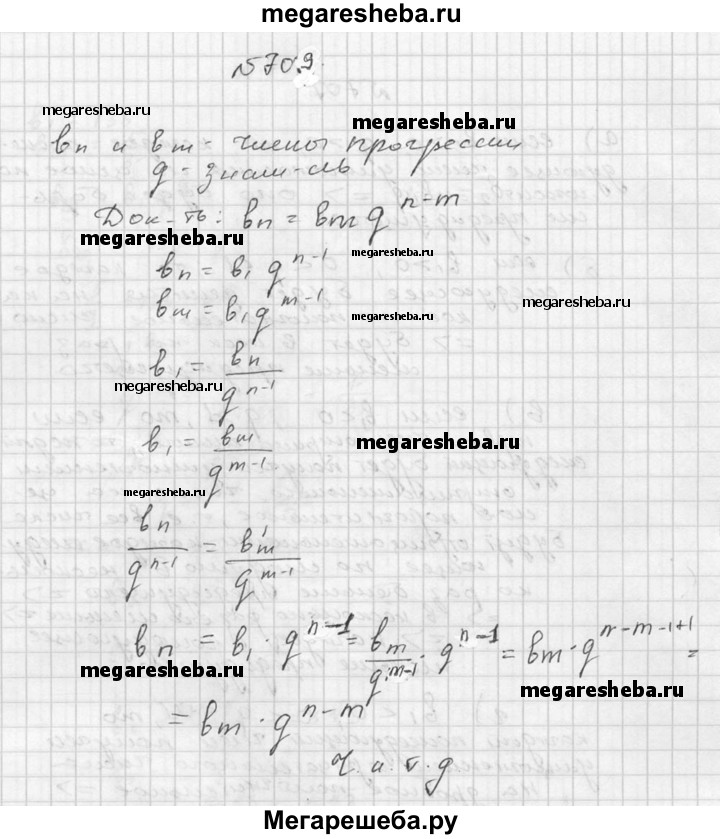 megaresheba.ru
№709.
megaresheba.ru
megaresheba.ru
bn и bm - члены прогрессии
q - знам-ль
Док-ть: bn = bm q^n-m
megaresheba.ru
bn = b1 q^n-1
megaresheba.ru
megaresheba.ru
bm = b1 q^m-1
megaresheba.ru
b1 = bn / q^n-1
megaresheba.ru
b1 = bm / q^m-1
megaresheba.ru
megaresheba.ru
bn / q^n-1 = bm / q^m-1
bn = b1 · q^n-1 = bm / q^m-1 · q^n-1 = bm · q^n-m-1+1 =
megaresheba.ru
megaresheba.ru
= bm · q^n-m
Ч. и. т. д
Мегарешеба.ру